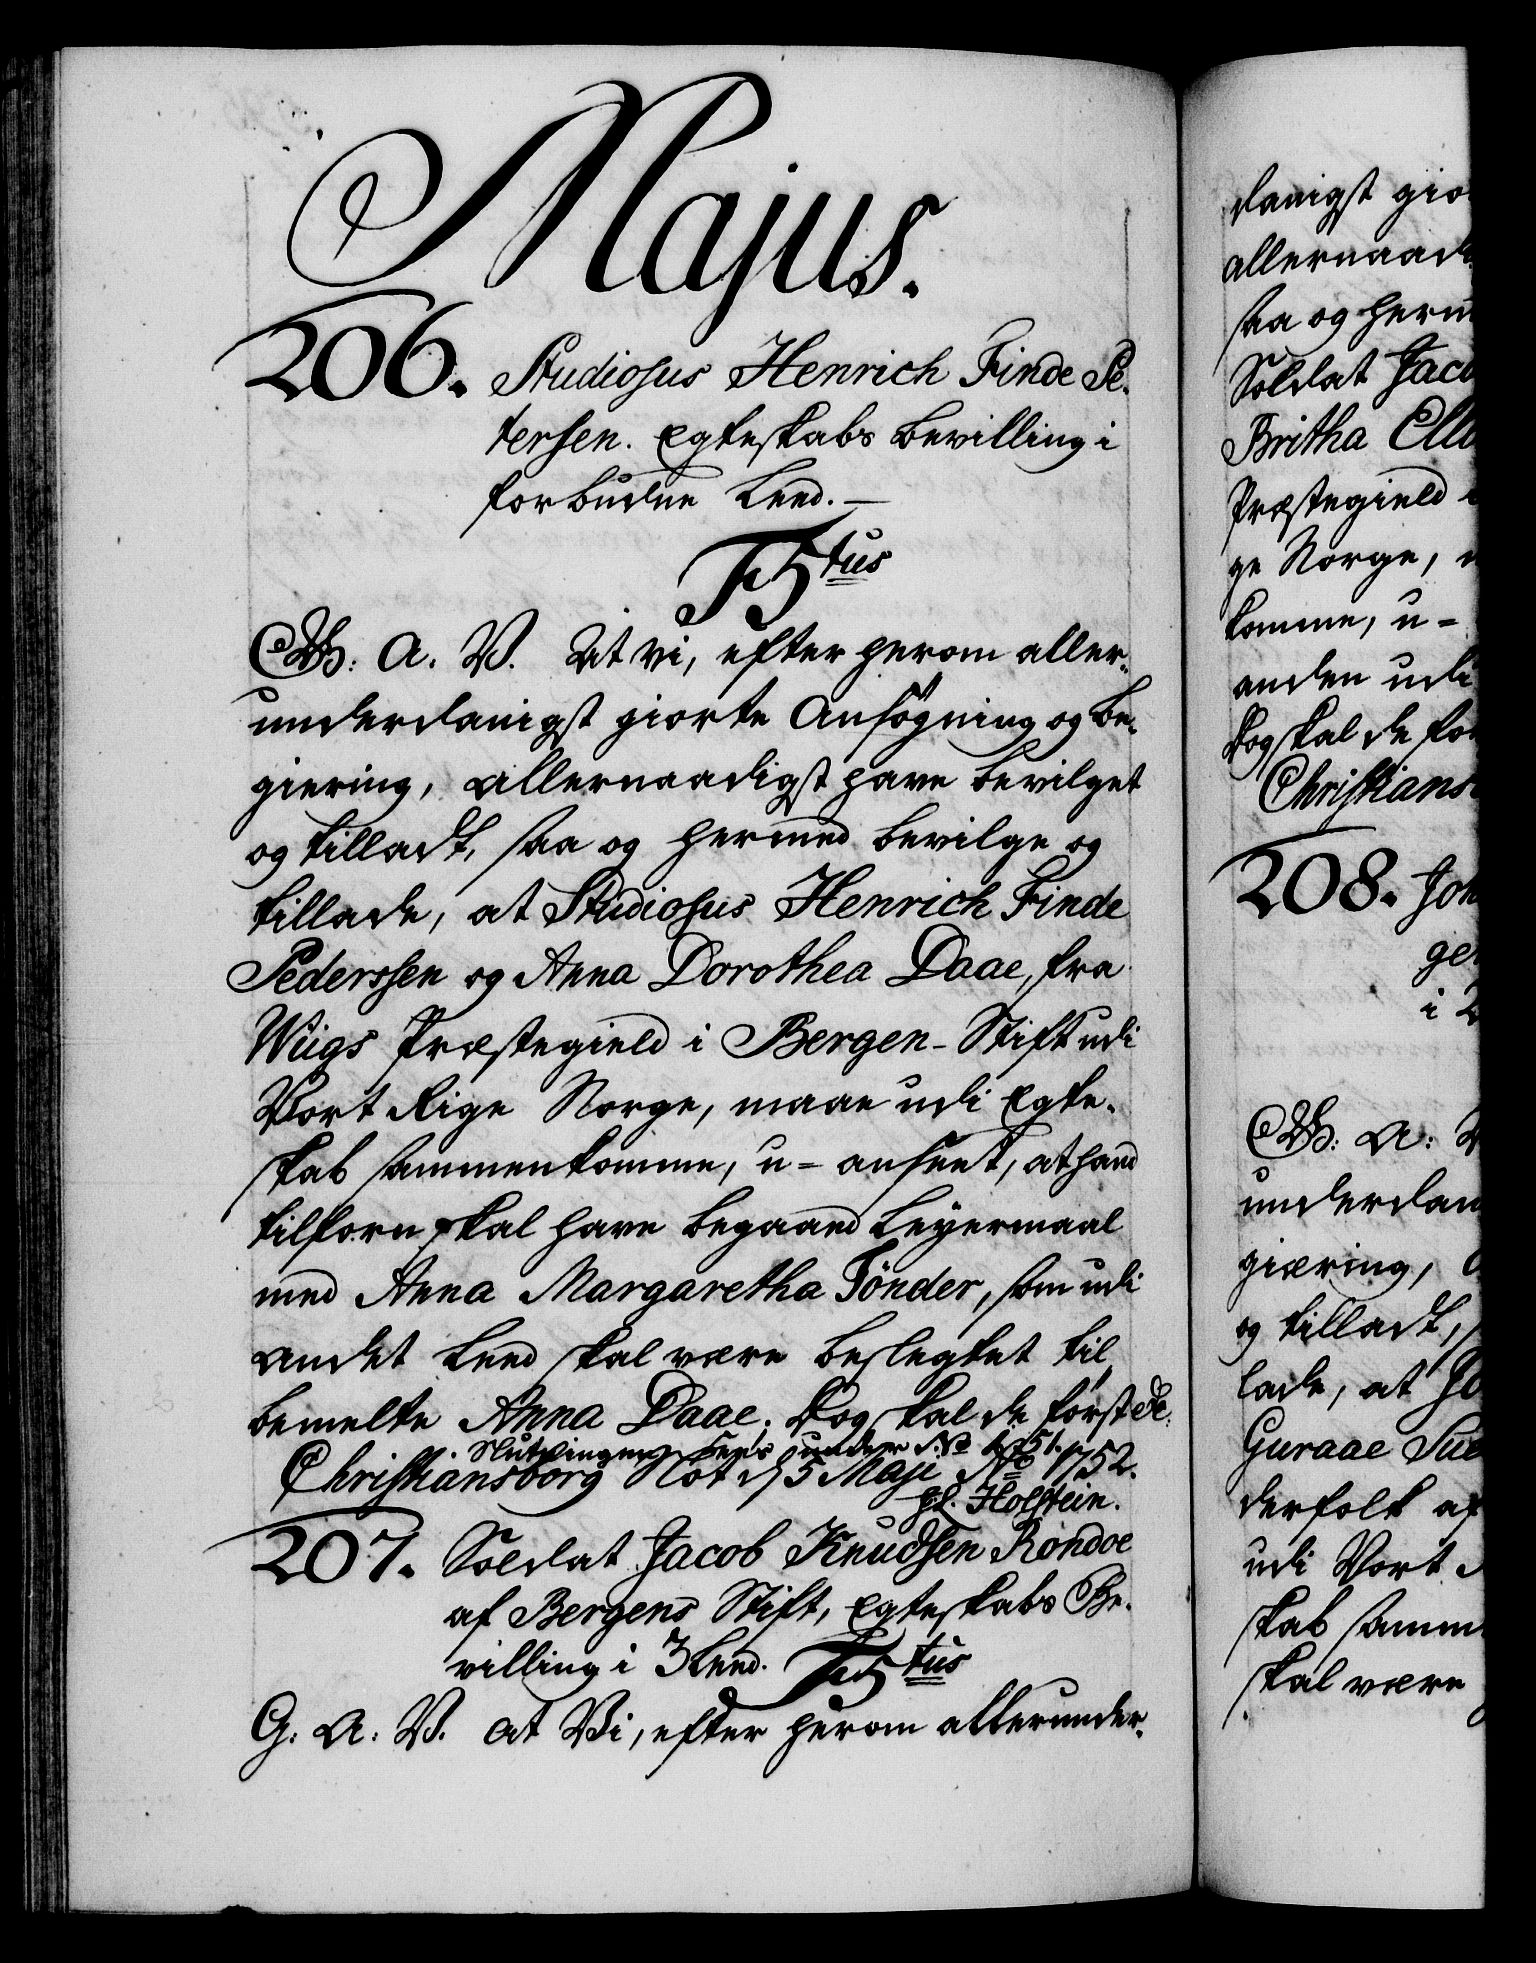 Majus.
206. Studiosus Henrich Finde Pe-
tersen. Egteskabs Bevilling i
forbudne Leed. —
F5tus
G: A. V. At vi, efter herom aller-
underdanigst giorte Ansøgning og Be-
giering, allernaadigst have bevilget
og tilladt, saa og hermed bevilge og
tillade, at Studiosus Henrich Finde
Pederssen og Anna Dorothea Daae, fra
Wiigs Præstegield i Bergen-Stift udi
Vort Rige Norge, maae udi Egte-
skab sammenkomme, u-anseet, at hand
tilforn skal have begaaed Leyermaal
med Anna Margaretha Tönder, som udi
andet Leed skal være beslegtet til
bemelte Anna Daae; Dog skal de först &c.
Slutningen sees under No
Christiansborg Slot d 5 Maji Ao 1752.
Holstein.
207. Soldat Jacob Knudsen Rondoe
af Bergens Stift, Egteskabs Be-
villing i 3 Leed. F5tus
G: A: V. At Vi, efter herom allerunder-
danigst gio
allernaad
saa og herm
Soldat Jaco
Britha Elle
Præstegield
ge Norge,
komme, u-
anden udi
Dog skal de for
Christians
208. Joh
ge
i
G: A: V
underdan
giæring,
og tilladt,
lade, at Jo
Guraae Sue
derfolk af
udi Vort
skab samm
skal være